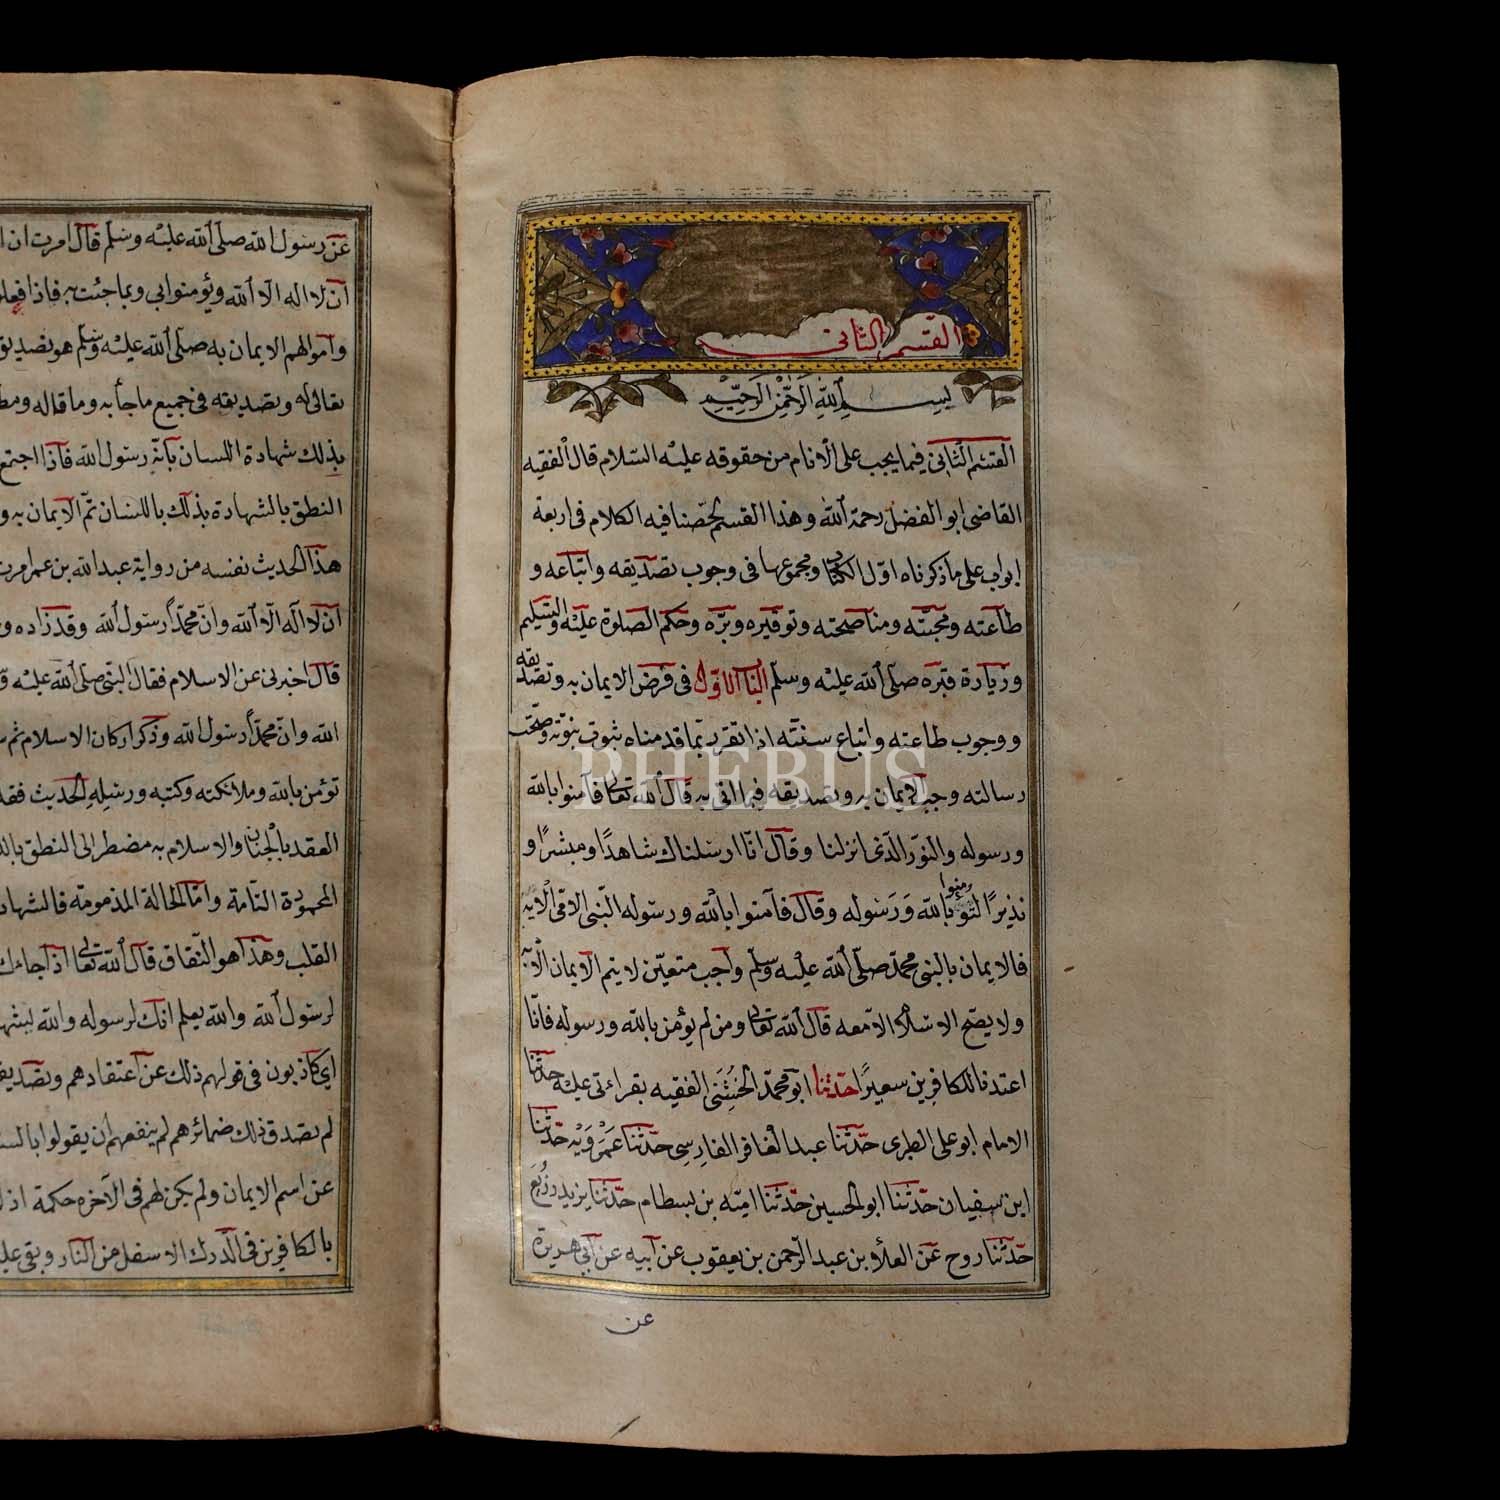 القسم الثاني
بسم الله الرحمن الرحيم
القسم الثانى فيما يجب على الانام من حقوقه عليه السلام قال الفقيه
القاضى ابو الفضل رحمة الله وهذا القسم لخصنا فيه الكلام فى اربعة
ابواب على ما ذكرناه اول الكتاب ومجموعها فى وجوب تصديقه واتباعه و
طاعته ومحبته ومناصحته وتوقيره وبره وحكم الصلوة عليه والتسليم
وزيارة قبره صلى الله عليه وسلم الباب الاول فى فرض الايمان به وتصديقه
ووجوب طاعته واتباع سنته اذا تقرر بما قدمناه ثبوت نبوته وصحت
رسالته وجب الايمان به وتصديقه فيما اتى به قال الله تعالى فآمنوا بالله
ورسوله والنور الذى انزلنا وقال انا ارسلناك شاهدًا ومبشرًا و
نذيرًا لتؤمنوا بالله وَرَسُوله وقال فآمنوا بالله ورسوله النبى الامى الآية
فالايمان بالنبى محمد صلى الله عليه وسلم واجب متعين لا يتم الايمان الا به
ولا يصح الاسلام الا معه قال الله تعالى ومن لم يؤمن بالله ورسوله فانا
اعتدنا للكافرين سعيرًا حدثنا ابو محمد الخشنى الفقيه بقراءتى عليه حدثنا
الامام ابو على الطبرى حدثنا عبد الغافر الفارسى حدثنا عمرويه حدثنا
ابن سفيان حدثنا ابو الحسين حدثنا اميه بن بسطام حدثنا يزيد بن زريع
حدثنا روح عن العلاء بن عبد الرحمن بن يعقوب عن ابيه عن ابى هريرة
عن
عن رسول الله صلى الله عليه وسلم قال امرت ان
ان لا اله الا الله ويؤمنوا بى وبما جئت به فاذا فعلوا
وآموالهم الايمان به صلى الله عليه وسلم هو تصديق
تعالى له وتصديقه فى جميع ما جأ به وما قاله
بذلك شهادة اللسان بانه رسول الله فاذا اجتمع
النطق بالشهادة بذلك باللسان تم الايمان به و
هذا الحديث نفسه من رواية عبد الله بن عمر امرت
ان لا اله الا الله وان محمدًا رسول الله وقد زاده و
قال اخبرنى عن الاسلام فقال النبى صلى الله عليه و
الله وان محمدًا رسول الله وذكر اركان الاسلام ثم
تؤمن بالله وملائكته وكتبه ورسله الحديث فقد
العقد بالجنان والاسلام به مضطر الى النطق
المحمودة التامة واما الحالة المذمومة فالشهادة
القلب وهذا هو النفاق قال الله تعالى اذا جاءك
لرسول الله والله يعلم انك لرسوله والله يشهد
اى كاذبون فى قولهم ذلك عن اعتقادهم وتصديق
لم يصدق ذلك ضمائرهم لم ينفعهم ان يقولوا
عن اسم الايمان ولم يكن لهم فى الآخره حكمة اذ
بالكافرين فى الدرك الاسفل من النار وبقى
PHEBUS